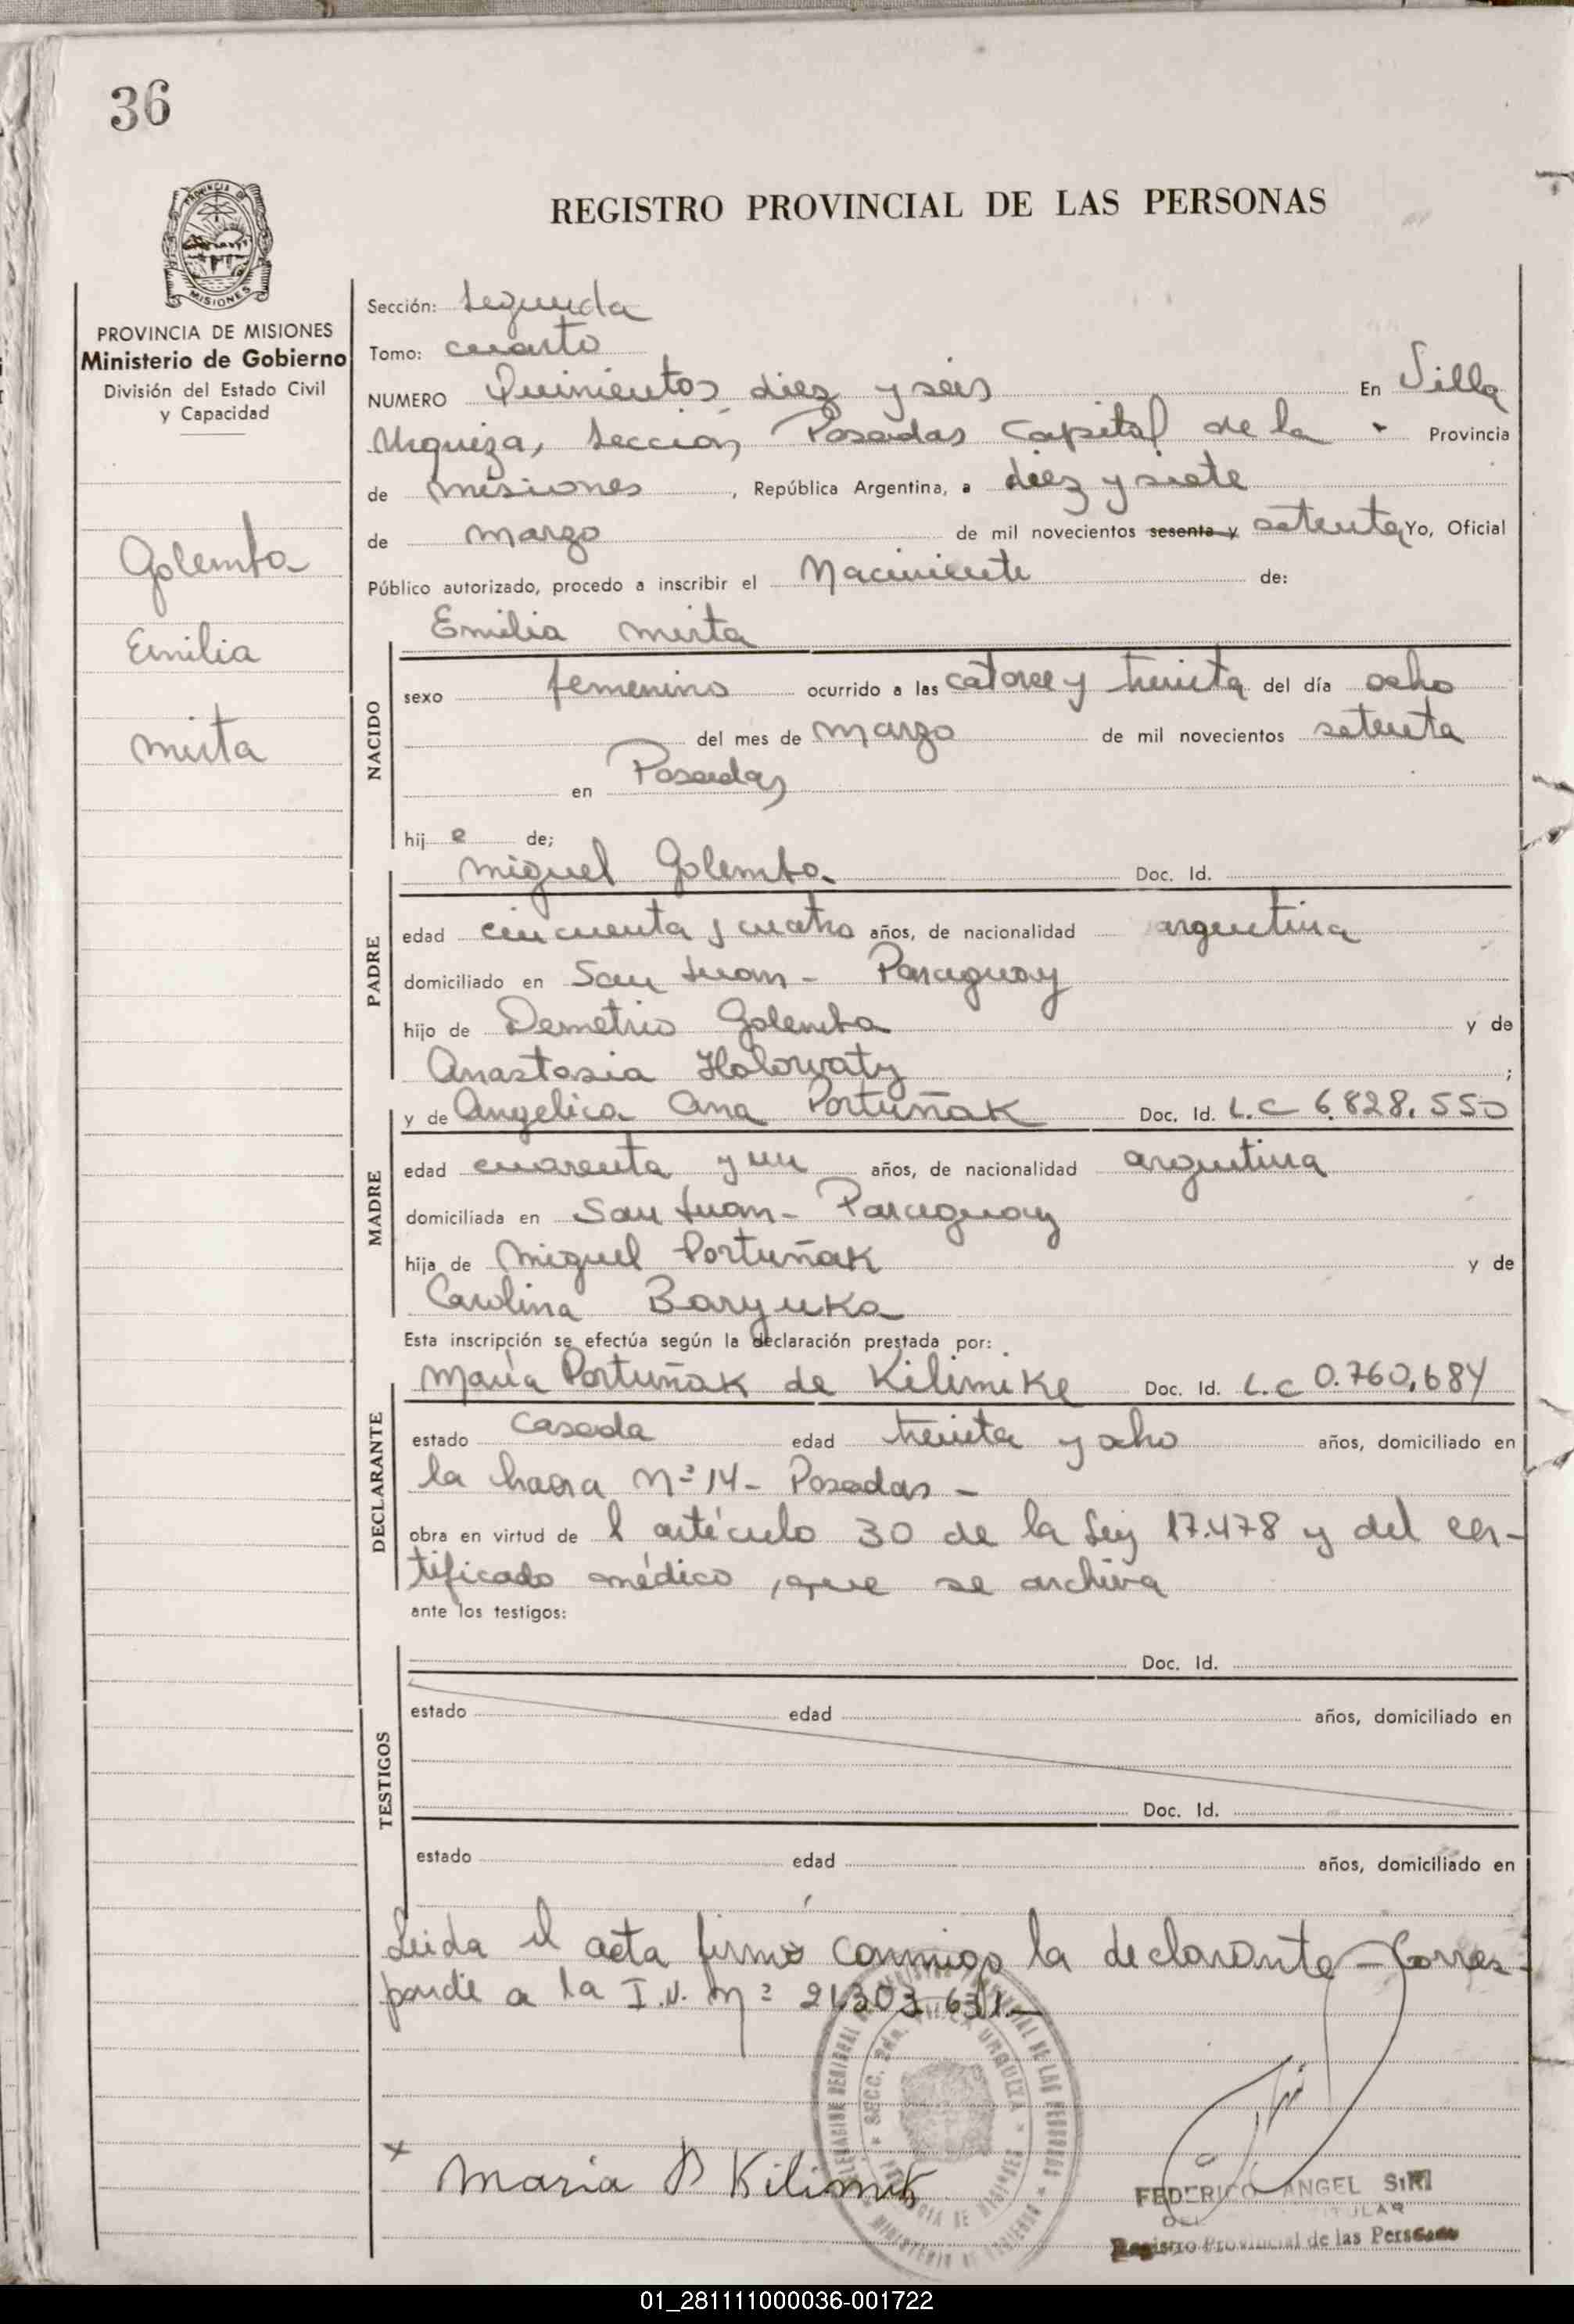 36
REGISTRO PROVINCIAL DE LAS PERSONAS
PROVINCIA DE
MISIONES
PROVINCIA DE MISIONES
Ministerio de Gobierno
División del Estado Civil
y Capacidad
Golemba
Emilia
Mirta
Sección: Segunda
Tomo: cuarto
NUMERO Quinientos diez y seis En Villa
Urquiza, Sección, Posadas Capital de la - Provincia
de misiones, República Argentina, a diez y siete
de marzo de mil novecientos sesenta y setenta Yo, Oficial
Público autorizado, procedo a inscribir el Nacimiento de:
Emilia Mirta
NACIDO
sexo femenino ocurrido a las catorce y treinta del día ocho
del mes de marzo de mil novecientos setenta
en Posadas
hij a de;
Miguel Golemba Doc. Id.
PADRE
edad cincuenta y cuatro años, de nacionalidad argentina
domiciliado en San Juan - Paraguay
hijo de Demetrio Golemba y de
Anastasia Holowaty ;
y de Angelica Ana Portuñak Doc. Id. L.C 6.828.550
MADRE
edad cuarenta y un años, de nacionalidad argentina
domiciliada en San Juan - Paraguay
hija de Miguel Portuñak y de
Carolina Baryuka
Esta inscripción se efectúa según la declaración prestada por:
María Portuñak de Kilimike Doc. Id. L.C 0.760.684
DECLARANTE
estado casada edad treinta y ocho años, domiciliado en
la Nº 14 - Posadas -
obra en virtud de l artículo 30 de la Ley 17.478 y del cer-
tificado médico, que se archiva
ante los testigos:
TESTIGOS
Doc. Id.
estado edad años, domiciliado en
Doc. Id.
estado edad años, domiciliado en
Leida el acta firmó conmigo la declarante - Corres-
ponde a la I.N. Nº 21.303.631.-
SECC. 2da. VILLA URQUIZA
PROVINCIA DE MISIONES
MINISTERIO DE GOBIERNO
x Maria P Kilimik
FEDERICO ANGEL SIRI
TITULAR
DEL
Registro Provincial de las Personas
01_281111000036-001722